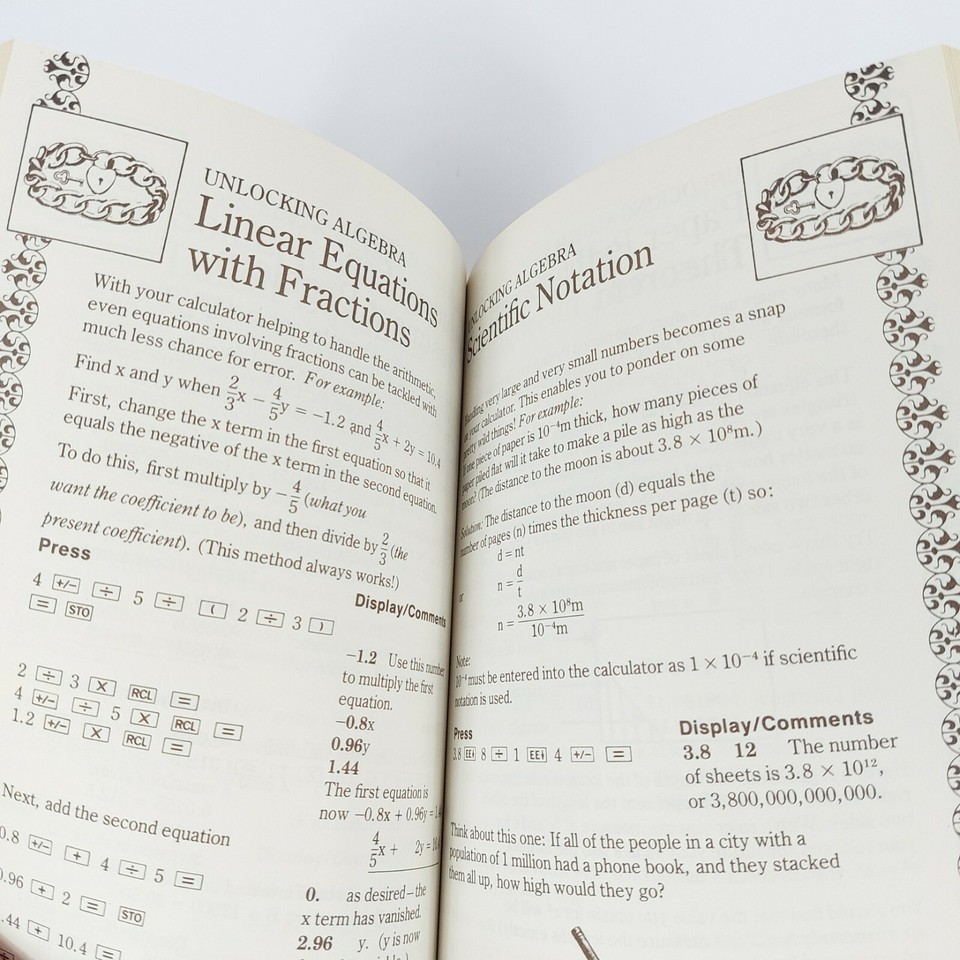 UNLOCKING ALGEBRA
Linear Equations
with Fractions
With your calculator helping to handle the arithmetic,
even equations involving fractions can be tackled with
much less chance for error. For example:
Find x and y when 2/3x − 4/5y = −1.2 and 4/5x + 2y = 10.4
First, change the x term in the first equation so that it
equals the negative of the x term in the second equation.
To do this, first multiply by − 4/5 (what you
want the coefficient to be), and then divide by 2/3 (the
present coefficient). (This method always works!)
Press
Display/Comments
4 +/− ÷ 5 ÷ ( 2 ÷ 3 )
= STO
−1.2 Use this number
to multiply the first
equation.
2 ÷ 3 X RCL =
−0.8x
4 +/− ÷ 5 X RCL =
0.96y
1.2 +/− X RCL =
1.44
The first equation is
now −0.8x + 0.96y =
Next, add the second equation
4/5x + 2y =
0.8 +/− + 4 ÷ 5 =
0. as desired–the
x term has vanished.
0.96 + 2 = STO
2.96 y. (y is now
.44 + 10.4 =
UNLOCKING ALGEBRA
Scientific Notation
Handling very large and very small numbers becomes a snap
on your calculator. This enables you to ponder on some
pretty wild things! For example:
If one piece of paper is 10⁻⁴m thick, how many pieces of
paper piled flat will it take to make a pile as high as the
moon? (The distance to the moon is about 3.8 × 10⁸m.)
Solution: The distance to the moon (d) equals the
number of pages (n) times the thickness per page (t) so:
d = nt
or n = d/t
n = 3.8 × 10⁸m/10⁻⁴m
Note:
10⁻⁴ must be entered into the calculator as 1 × 10⁻⁴ if scientific
notation is used.
Press
Display/Comments
3.8 EE↓ 8 ÷ 1 EE↓ 4 +/− =
3.8 12 The number
of sheets is 3.8 × 10¹²,
or 3,800,000,000,000.
Think about this one: If all of the people in a city with a
population of 1 million had a phone book, and they stacked
them all up, how high would they go?